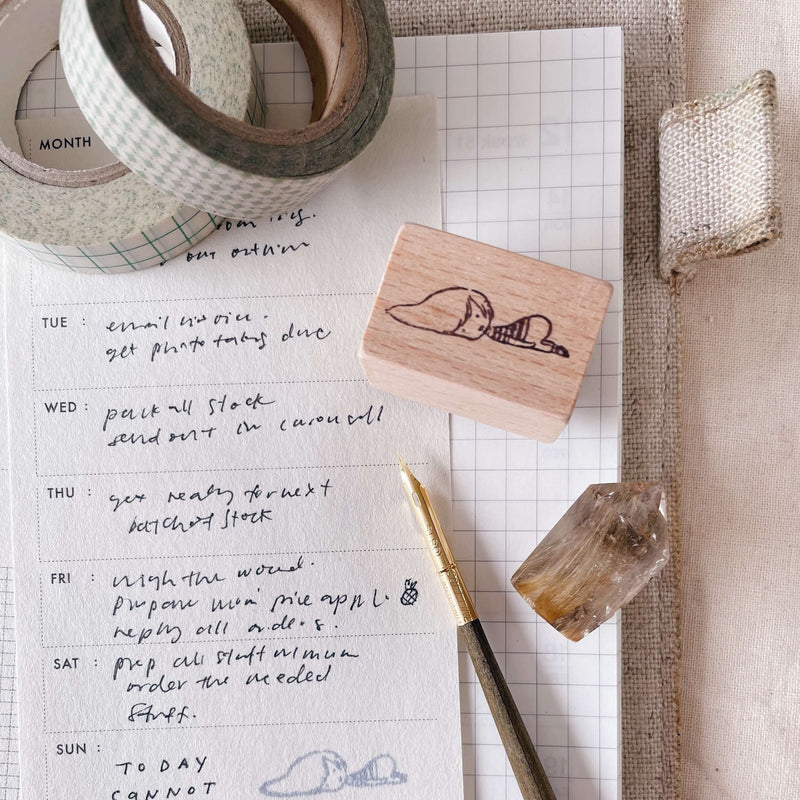 MONTH
TUE :
email invoice.
get photo taking due
WED :
pack all stock
send out in carousell
THU :
get ready for next
batch of stock
FRI :
the wound.
prepare pineappl.
reply all orders.
SAT :
prep all stuff w mum
order the needed
stuff.
SUN :
TODAY
CANNOT